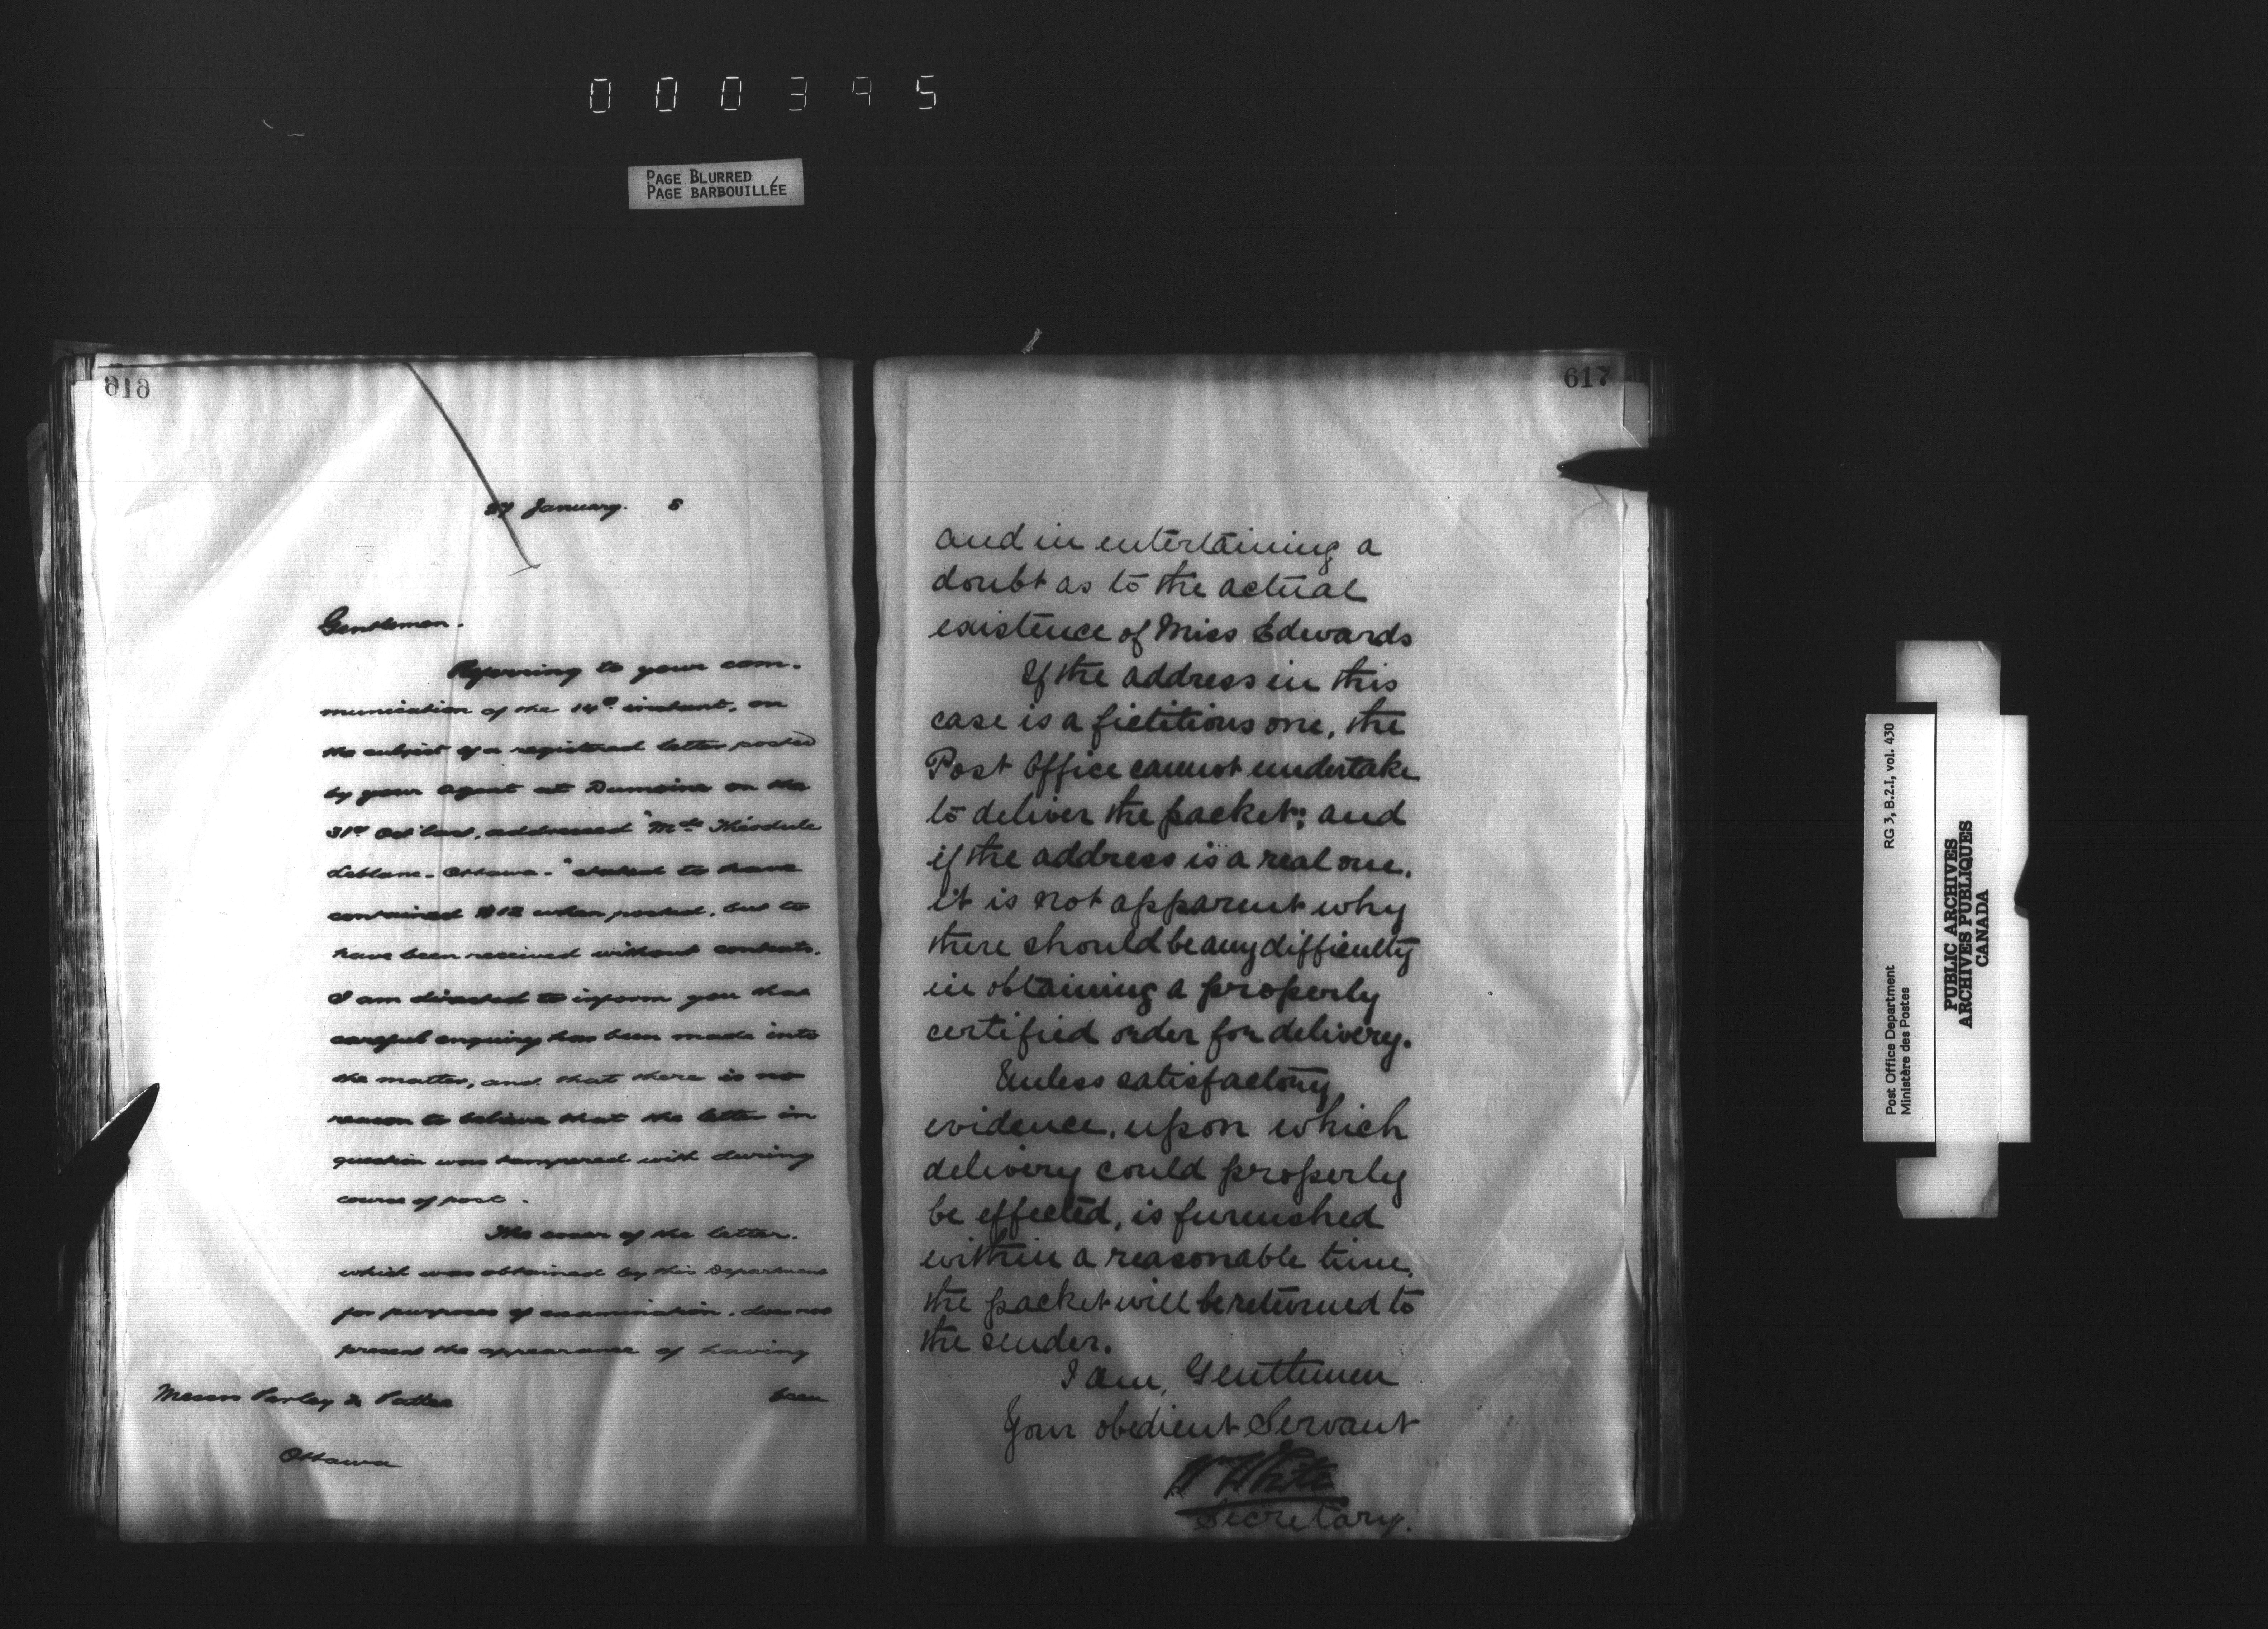 000395
PAGE BLURRED
PAGE BARBOUILLÉE
616
27 January. 5
Gentlemen.
Referring to your com-
munication of the 14th instant, on
the subject of a registered letter posted
by your agent at Dumoine on the
31st Oct last, addressed "Mde Théodule
Leblanc - Ottawa -" stated to have
contained $12 when posted, but to
have been received without contents.
I am directed to inform you that
careful enquiry has been made into
the matter, and that there is no
reason to believe that the letter in
question was tampered with during
course of post.
The cover of the letter,
which was obtained by this Department
for purposes of examination, does not
present the appearance of having
Messrs Perley & Pattee
been
Ottawa
617
and in entertaining a
doubt as to the actual
existence of Miss Edwards
If the address in this
case is a fictitious one, the
Post Office cannot undertake
to deliver the packet; and
if the address is a real one,
it is not apparent why
there should be any difficulty
in obtaining a properly
certified order for delivery.
Unless satisfactory
evidence, upon which
delivery could properly
be effected, is furnished
within a reasonable time,
the packet will be returned to
the sender.
I am, Gentlemen
Your obedient Servant
Wm White
Secretary.
Post Office Department RG 3, B.2.I, vol. 430
Ministère des Postes
PUBLIC ARCHIVES
ARCHIVES PUBLIQUES
CANADA